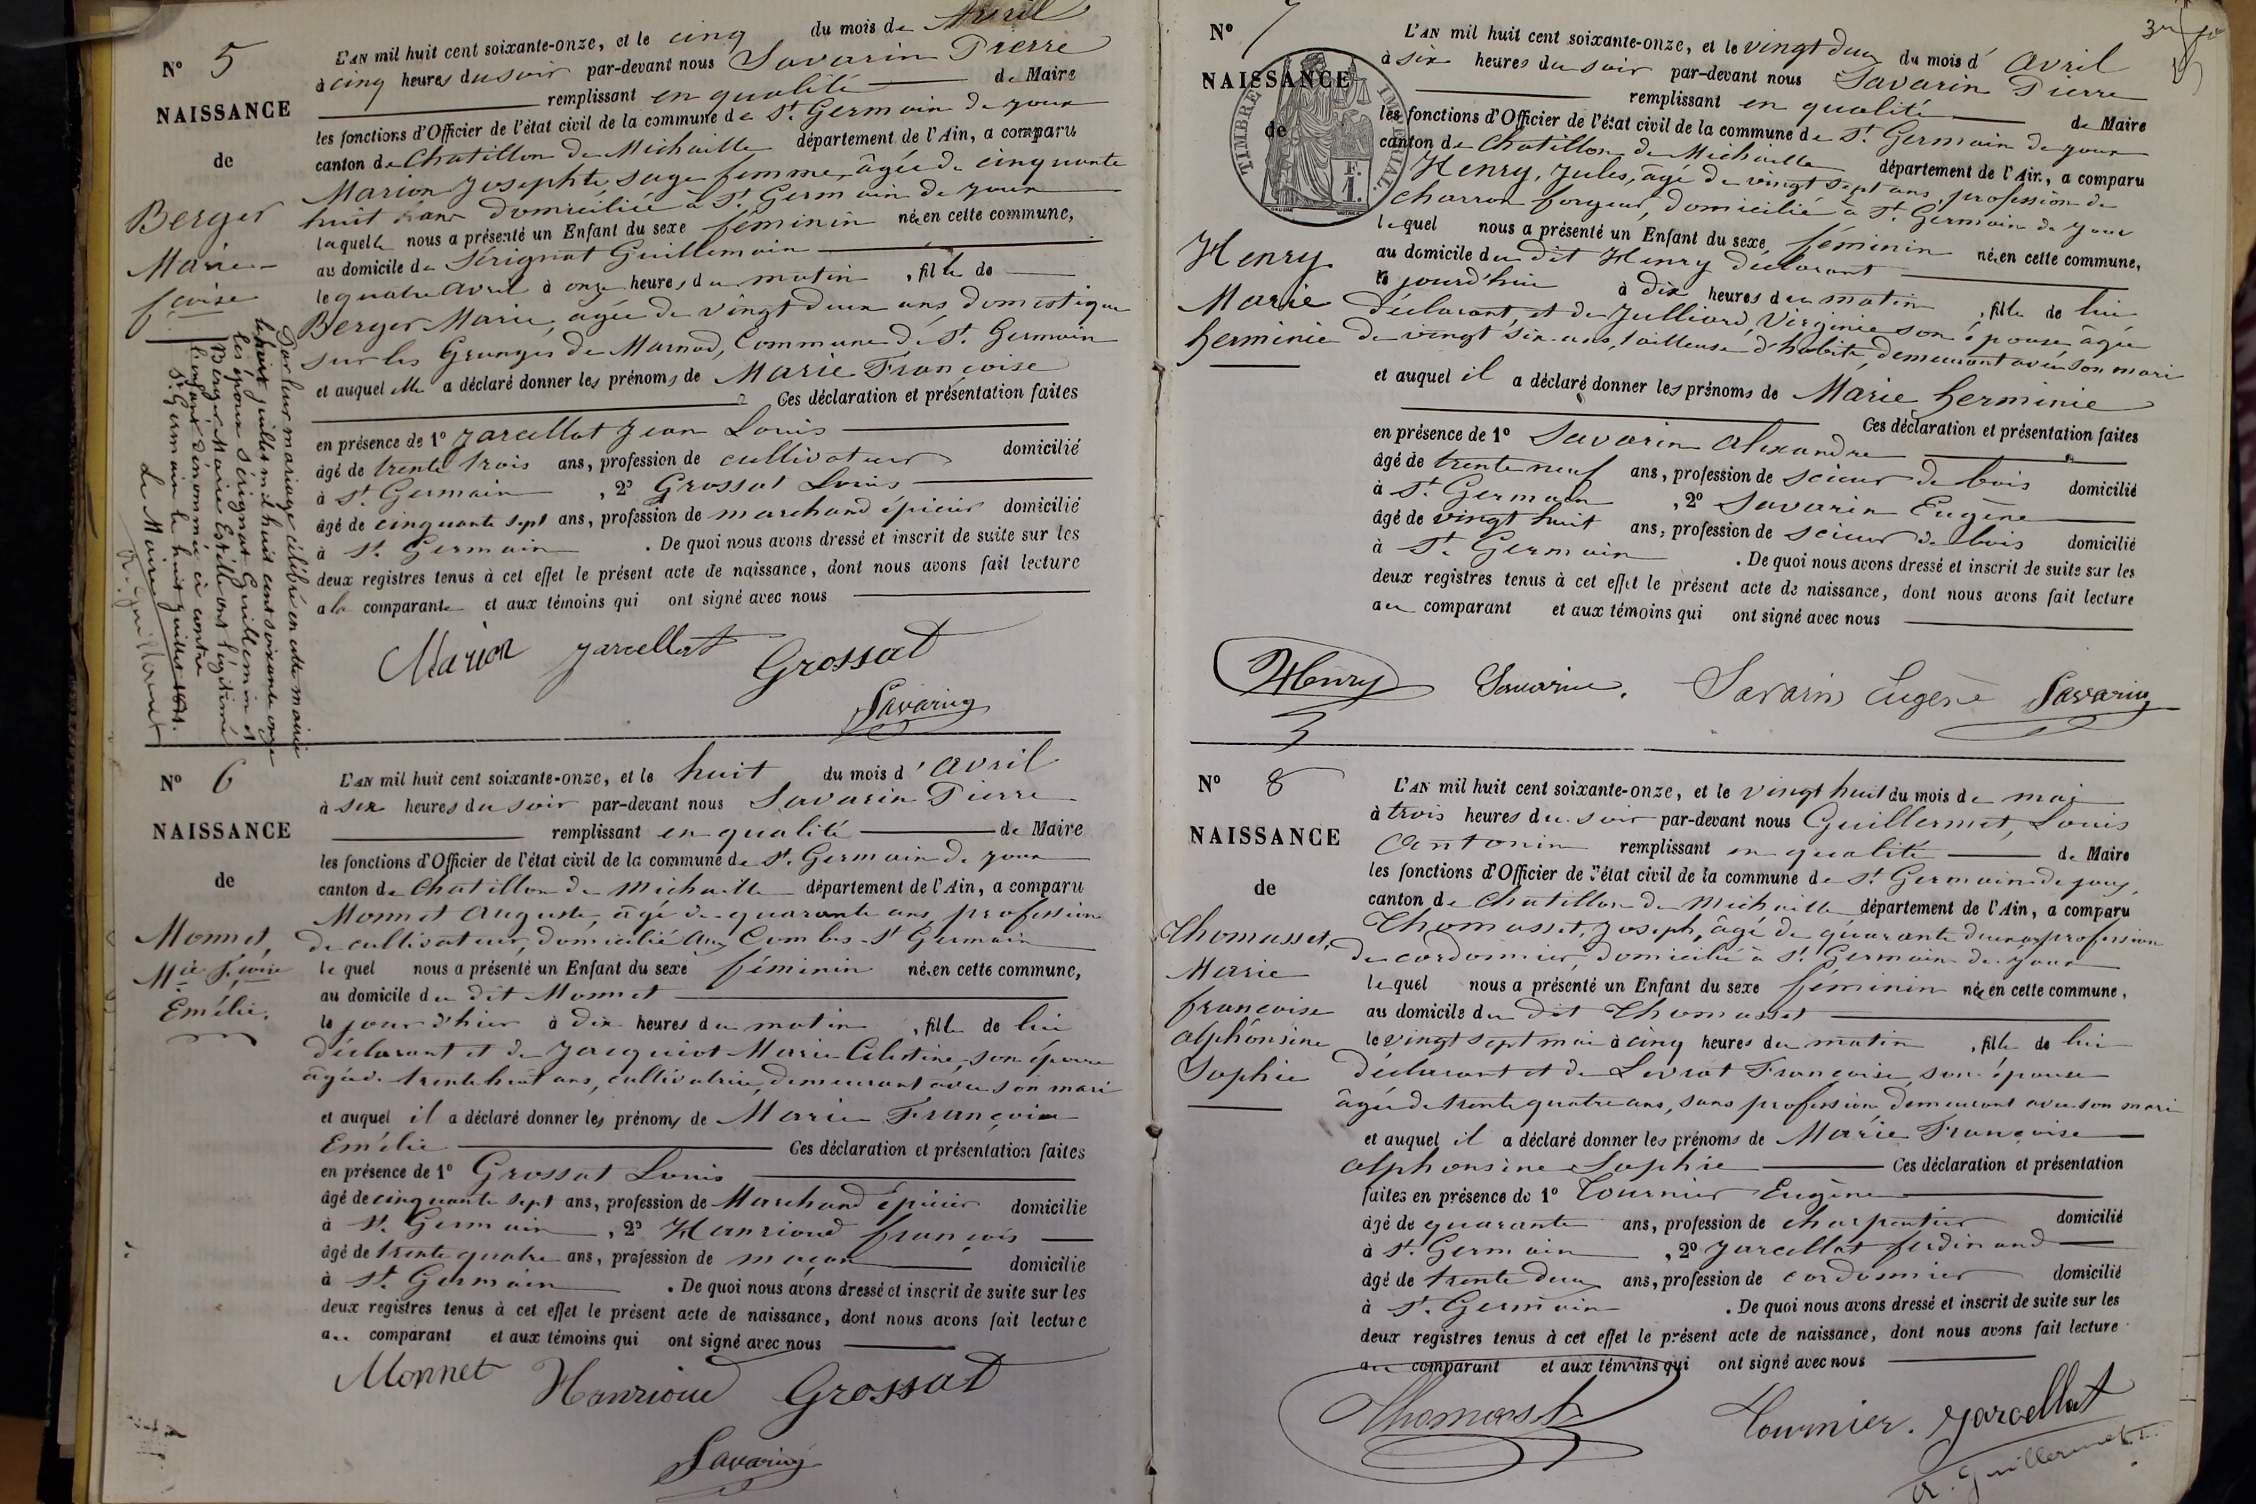 N° 5
NAISSANCE
de
Berger
Marie
fçoise
L'AN mil huit cent soixante-onze, et le cinq du mois de Avril
à cinq heures du soir par-devant nous Savarin Pierre
remplissant en qualité de Maire
les fonctions d'Officier de l'état civil de la commune de St. Germain de joux
canton de Chatillon de Michaille département de l'Ain, a comparu
Marion Josephte, sage femme, âgée de cinquante
huit ans domiciliée à St. Germain de joux
laquelle nous a présenté un Enfant du sexe féminin née en cette commune,
au domicile de Sérignat Guillemin
le quatre avril à onze heures du matin, fille de
Berger Marie, âgée de vingt deux ans, domestique
sur les Granges de Marnod, Commune de St. Germain
et auquel elle a déclaré donner les prénoms de Marie Françoise
Ces déclaration et présentation faites
en présence de 1° Jarcellat Jean Louis
âgé de trente trois ans, profession de cultivateur domicilié
à St. Germain, 2° Grossat Louis
âgé de cinquante sept ans, profession de marchand épicier domicilié
à St. Germain. De quoi nous avons dressé et inscrit de suite sur les
deux registres tenus à cet effet le présent acte de naissance, dont nous avons fait lecture
a la comparante et aux témoins qui ont signé avec nous
Marion Jarcellat Grossat
Savarin
Par leur mariage célébré en cette mairie
le huit juillet mil huit cent soixante onze
les époux Sérignat Guillemin et
Berger Marie Estelle ont légitimé
l'enfant dénommé ci contre
St. Germain le huit juillet 1871.
Le Maire
A. Guillermet
N° 6
NAISSANCE
de
Monnet,
Mie Fçoise
Emélie.
L'AN mil huit cent soixante-onze, et le huit du mois d'avril
à six heures du soir par-devant nous Savarin Pierre
remplissant en qualité de Maire
les fonctions d'Officier de l'état civil de la commune de St. Germain de joux
canton de Chatillon de Michaille département de l'Ain, a comparu
Monnet Auguste, âgé de quarante ans, profession
de cultivateur, domicilié aux Combes St Germain
lequel nous a présenté un Enfant du sexe féminin née en cette commune,
au domicile du dit Monnet
le jour d'hier à dix heures du matin, fille de lui
déclarant et de Jacquiot Marie Célestine, son épouse
âgée de trente huit ans, cultivatrice, demeurant avec son mari
et auquel il a déclaré donner les prénoms de Marie Françoise
Emélie Ces déclaration et présentation faites
en présence de 1° Grossat Louis
âgé de cinquante sept ans, profession de Marchand épicier domicilie
à St. Germain, 2° Hanrioud françois
âgé de trente quatre ans, profession de maçon domicilie
à St. Germain. De quoi nous avons dressé et inscrit de suite sur les
deux registres tenus à cet effet le présent acte de naissance, dont nous avons fait lecture
au comparant et aux témoins qui ont signé avec nous
Monnet Hanrioud Grossat
Savarin
N° 7
NAISSANCE
de
TIMBRE IMPERIAL
1 F.
Henry
Marie
herminie
L'AN mil huit cent soixante-onze, et le vingt deux du mois d'avril
à six heures du soir par-devant nous Savarin Pierre
remplissant en qualité de Maire
les fonctions d'Officier de l'état civil de la commune de St Germain de joux
canton de Chatillon de Michaille département de l'Ain, a comparu
Henry, Jules, âgé de vingt sept ans, profession de
charron forgeur, domicilié à St. Germain de joux
lequel nous a présenté un Enfant du sexe féminin née en cette commune,
au domicile du dit Henry déclarant
le jourd'hui à dix heures du matin, fille de lui
déclarant, et de Julliard, Virginie son épouse, âgée
de vingt six ans, tailleuse d'habits, demeurant avec son mari
et auquel il a déclaré donner les prénoms de Marie herminie
Ces déclaration et présentation faites
en présence de 1° Savarin Alexandre
âgé de trente neuf ans, profession de scieur de bois domicilié
à St. Germain, 2° Savarin Eugène
âgé de vingt huit ans, profession de scieur de bois domicilié
à St. Germain. De quoi nous avons dressé et inscrit de suite sur les
deux registres tenus à cet effet le présent acte de naissance, dont nous avons fait lecture
au comparant et aux témoins qui ont signé avec nous
Henry Savarin. Savarin Eugène Savarin
N° 8
NAISSANCE
de
Thomasset,
Marie
françoise
alphonsine
Sophie
L'AN mil huit cent soixante-onze, et le vingt huit du mois de mai
à trois heures du soir par-devant nous Guillermet, Louis
Antonin remplissant en qualité de Maire
les fonctions d'Officier de l'état civil de la commune de St Germain de joux,
canton de Chatillon de Michaille département de l'Ain, a comparu
Thomasset, Joseph, âgé de quarante deux ans profession
de cordonnier, domicilié à St. Germain de joux
lequel nous a présenté un Enfant du sexe féminin née en cette commune,
au domicile du dit Thomasset
le vingt sept mai à cinq heures du matin, fille de lui
déclarant et de Levrat Françoise, son épouse
âgée de trente quatre ans, sans profession, demeurant avec son mari
et auquel il a déclaré donner les prénoms de Marie Françoise
alphonsine Sophie Ces déclaration et présentation
faites en présence de 1° Tournier Eugène
âgé de quarante ans, profession de charpentier domicilié
à St. Germain, 2° Jarcellat ferdinand
âgé de trente deux ans, profession de cordonnier domicilié
à St. Germain. De quoi nous avons dressé et inscrit de suite sur les
deux registres tenus à cet effet le présent acte de naissance, dont nous avons fait lecture
au comparant et aux témoins qui ont signé avec nous
Thomasset Tournier. Jarcellat
A. Guillermet